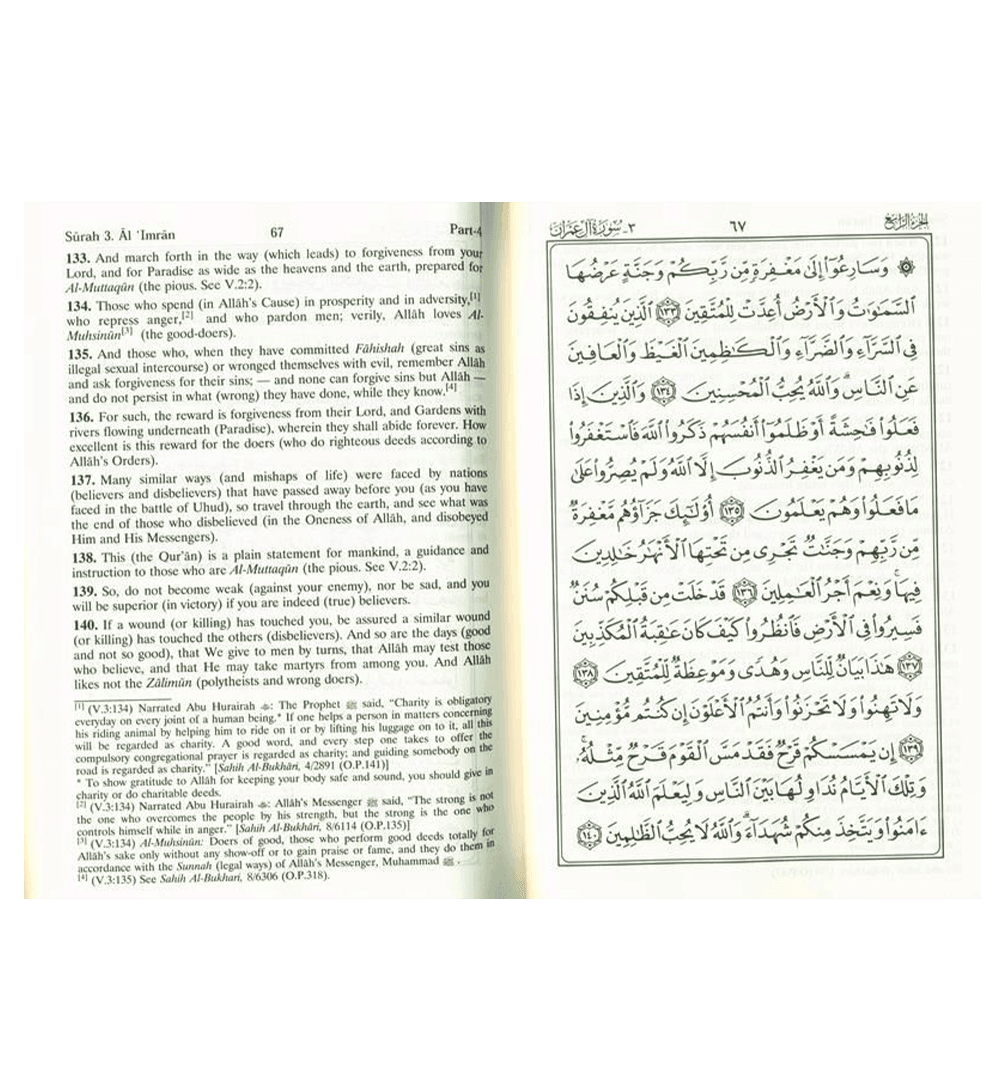 Sūrah 3. Āl 'Imrān 67 Part-4
133. And march forth in the way (which leads) to forgiveness from your
Lord, and for Paradise as wide as the heavens and the earth, prepared for
Al-Muttaqûn (the pious. See V.2:2).
134. Those who spend (in Allâh's Cause) in prosperity and in adversity,[1]
who repress anger,[2] and who pardon men; verily, Allâh loves Al-
Muhsinûn[3] (the good-doers).
135. And those who, when they have committed Fâhishah (great sins as
illegal sexual intercourse) or wronged themselves with evil, remember Allâh
and ask forgiveness for their sins; — and none can forgive sins but Allâh —
and do not persist in what (wrong) they have done, while they know.[4]
136. For such, the reward is forgiveness from their Lord, and Gardens with
rivers flowing underneath (Paradise), wherein they shall abide forever. How
excellent is this reward for the doers (who do righteous deeds according to
Allâh's Orders).
137. Many similar ways (and mishaps of life) were faced by nations
(believers and disbelievers) that have passed away before you (as you have
faced in the battle of Uhud), so travel through the earth, and see what was
the end of those who disbelieved (in the Oneness of Allâh, and disobeyed
Him and His Messengers).
138. This (the Qur'ân) is a plain statement for mankind, a guidance and
instruction to those who are Al-Muttaqûn (the pious. See V.2:2).
139. So, do not become weak (against your enemy), nor be sad, and you
will be superior (in victory) if you are indeed (true) believers.
140. If a wound (or killing) has touched you, be assured a similar wound
(or killing) has touched the others (disbelievers). And so are the days (good
and not so good), that We give to men by turns, that Allâh may test those
who believe, and that He may take martyrs from among you. And Allâh
likes not the Zâlimûn (polytheists and wrong doers).
[1] (V.3:134) Narrated Abu Hurairah : The Prophet ﷺ said, "Charity is obligatory
everyday on every joint of a human being.* If one helps a person in matters concerning
his riding animal by helping him to ride on it or by lifting his luggage on to it, all this
will be regarded as charity. A good word, and every step one takes to offer the
compulsory congregational prayer is regarded as charity; and guiding somebody on the
road is regarded as charity." [Sahih Al-Bukhâri, 4/2891 (O.P.141)]
* To show gratitude to Allâh for keeping your body safe and sound, you should give in
charity or do charitable deeds.
[2] (V.3:134) Narrated Abu Hurairah : Allâh's Messenger ﷺ said, "The strong is not
the one who overcomes the people by his strength, but the strong is the one who
controls himself while in anger." [Sahih Al-Bukhâri, 8/6114 (O.P.135)]
[3] (V.3:134) Al-Muhsinûn: Doers of good, those who perform good deeds totally for
Allâh's sake only without any show-off or to gain praise or fame, and they do them in
accordance with the Sunnah (legal ways) of Allâh's Messenger, Muhammad ﷺ .
[4] (V.3:135) See Sahih Al-Bukhari, 8/6306 (O.P.318).
الجزء الرابع ٦٧ ٣ - سورة آل عمران
۞ وَسَارِعُوٓاْ إِلَىٰ مَغْفِرَةٍ مِّن رَّبِّكُمْ وَجَنَّةٍ عَرْضُهَا
ٱلسَّمَٰوَٰتُ وَٱلْأَرْضُ أُعِدَّتْ لِلْمُتَّقِينَ ١٣٣ ٱلَّذِينَ يُنفِقُونَ
فِي ٱلسَّرَّآءِ وَٱلضَّرَّآءِ وَٱلْكَٰظِمِينَ ٱلْغَيْظَ وَٱلْعَافِينَ
عَنِ ٱلنَّاسِ وَٱللَّهُ يُحِبُّ ٱلْمُحْسِنِينَ ١٣٤ وَٱلَّذِينَ إِذَا
فَعَلُواْ فَٰحِشَةً أَوْ ظَلَمُوٓاْ أَنفُسَهُمْ ذَكَرُواْ ٱللَّهَ فَٱسْتَغْفَرُواْ
لِذُنُوبِهِمْ وَمَن يَغْفِرُ ٱلذُّنُوبَ إِلَّا ٱللَّهُ وَلَمْ يُصِرُّواْ عَلَىٰ
مَا فَعَلُواْ وَهُمْ يَعْلَمُونَ ١٣٥ أُوْلَٰٓئِكَ جَزَآؤُهُم مَّغْفِرَةٌ
مِّن رَّبِّهِمْ وَجَنَّٰتٌ تَجْرِي مِن تَحْتِهَا ٱلْأَنْهَٰرُ خَٰلِدِينَ
فِيهَا وَنِعْمَ أَجْرُ ٱلْعَٰمِلِينَ ١٣٦ قَدْ خَلَتْ مِن قَبْلِكُمْ سُنَنٌ
فَسِيرُواْ فِي ٱلْأَرْضِ فَٱنظُرُواْ كَيْفَ كَانَ عَٰقِبَةُ ٱلْمُكَذِّبِينَ
١٣٧ هَٰذَا بَيَانٌ لِّلنَّاسِ وَهُدًى وَمَوْعِظَةٌ لِّلْمُتَّقِينَ ١٣٨
وَلَا تَهِنُواْ وَلَا تَحْزَنُواْ وَأَنتُمُ ٱلْأَعْلَوْنَ إِن كُنتُم مُّؤْمِنِينَ
١٣٩ إِن يَمْسَسْكُمْ قَرْحٌ فَقَدْ مَسَّ ٱلْقَوْمَ قَرْحٌ مِّثْلُهُۥ
وَتِلْكَ ٱلْأَيَّامُ نُدَاوِلُهَا بَيْنَ ٱلنَّاسِ وَلِيَعْلَمَ ٱللَّهُ ٱلَّذِينَ
ءَامَنُواْ وَيَتَّخِذَ مِنكُمْ شُهَدَآءَ وَٱللَّهُ لَا يُحِبُّ ٱلظَّٰلِمِينَ ١٤٠